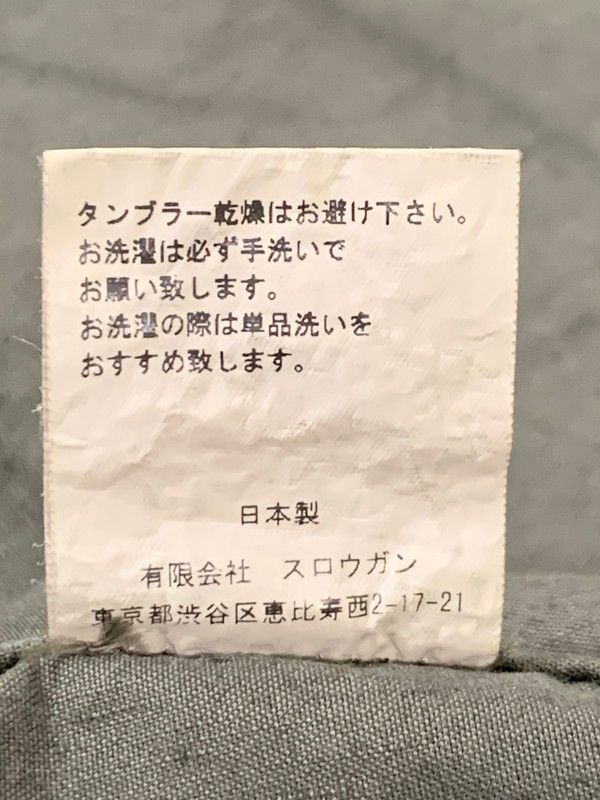 タンブラー乾燥はお避け下さい。
お洗濯は必ず手洗いで
お願い致します。
お洗濯の際は単品洗いを
おすすめ致します。
日本製
有限会社　スロウガン
東京都渋谷区恵比寿西2-17-21